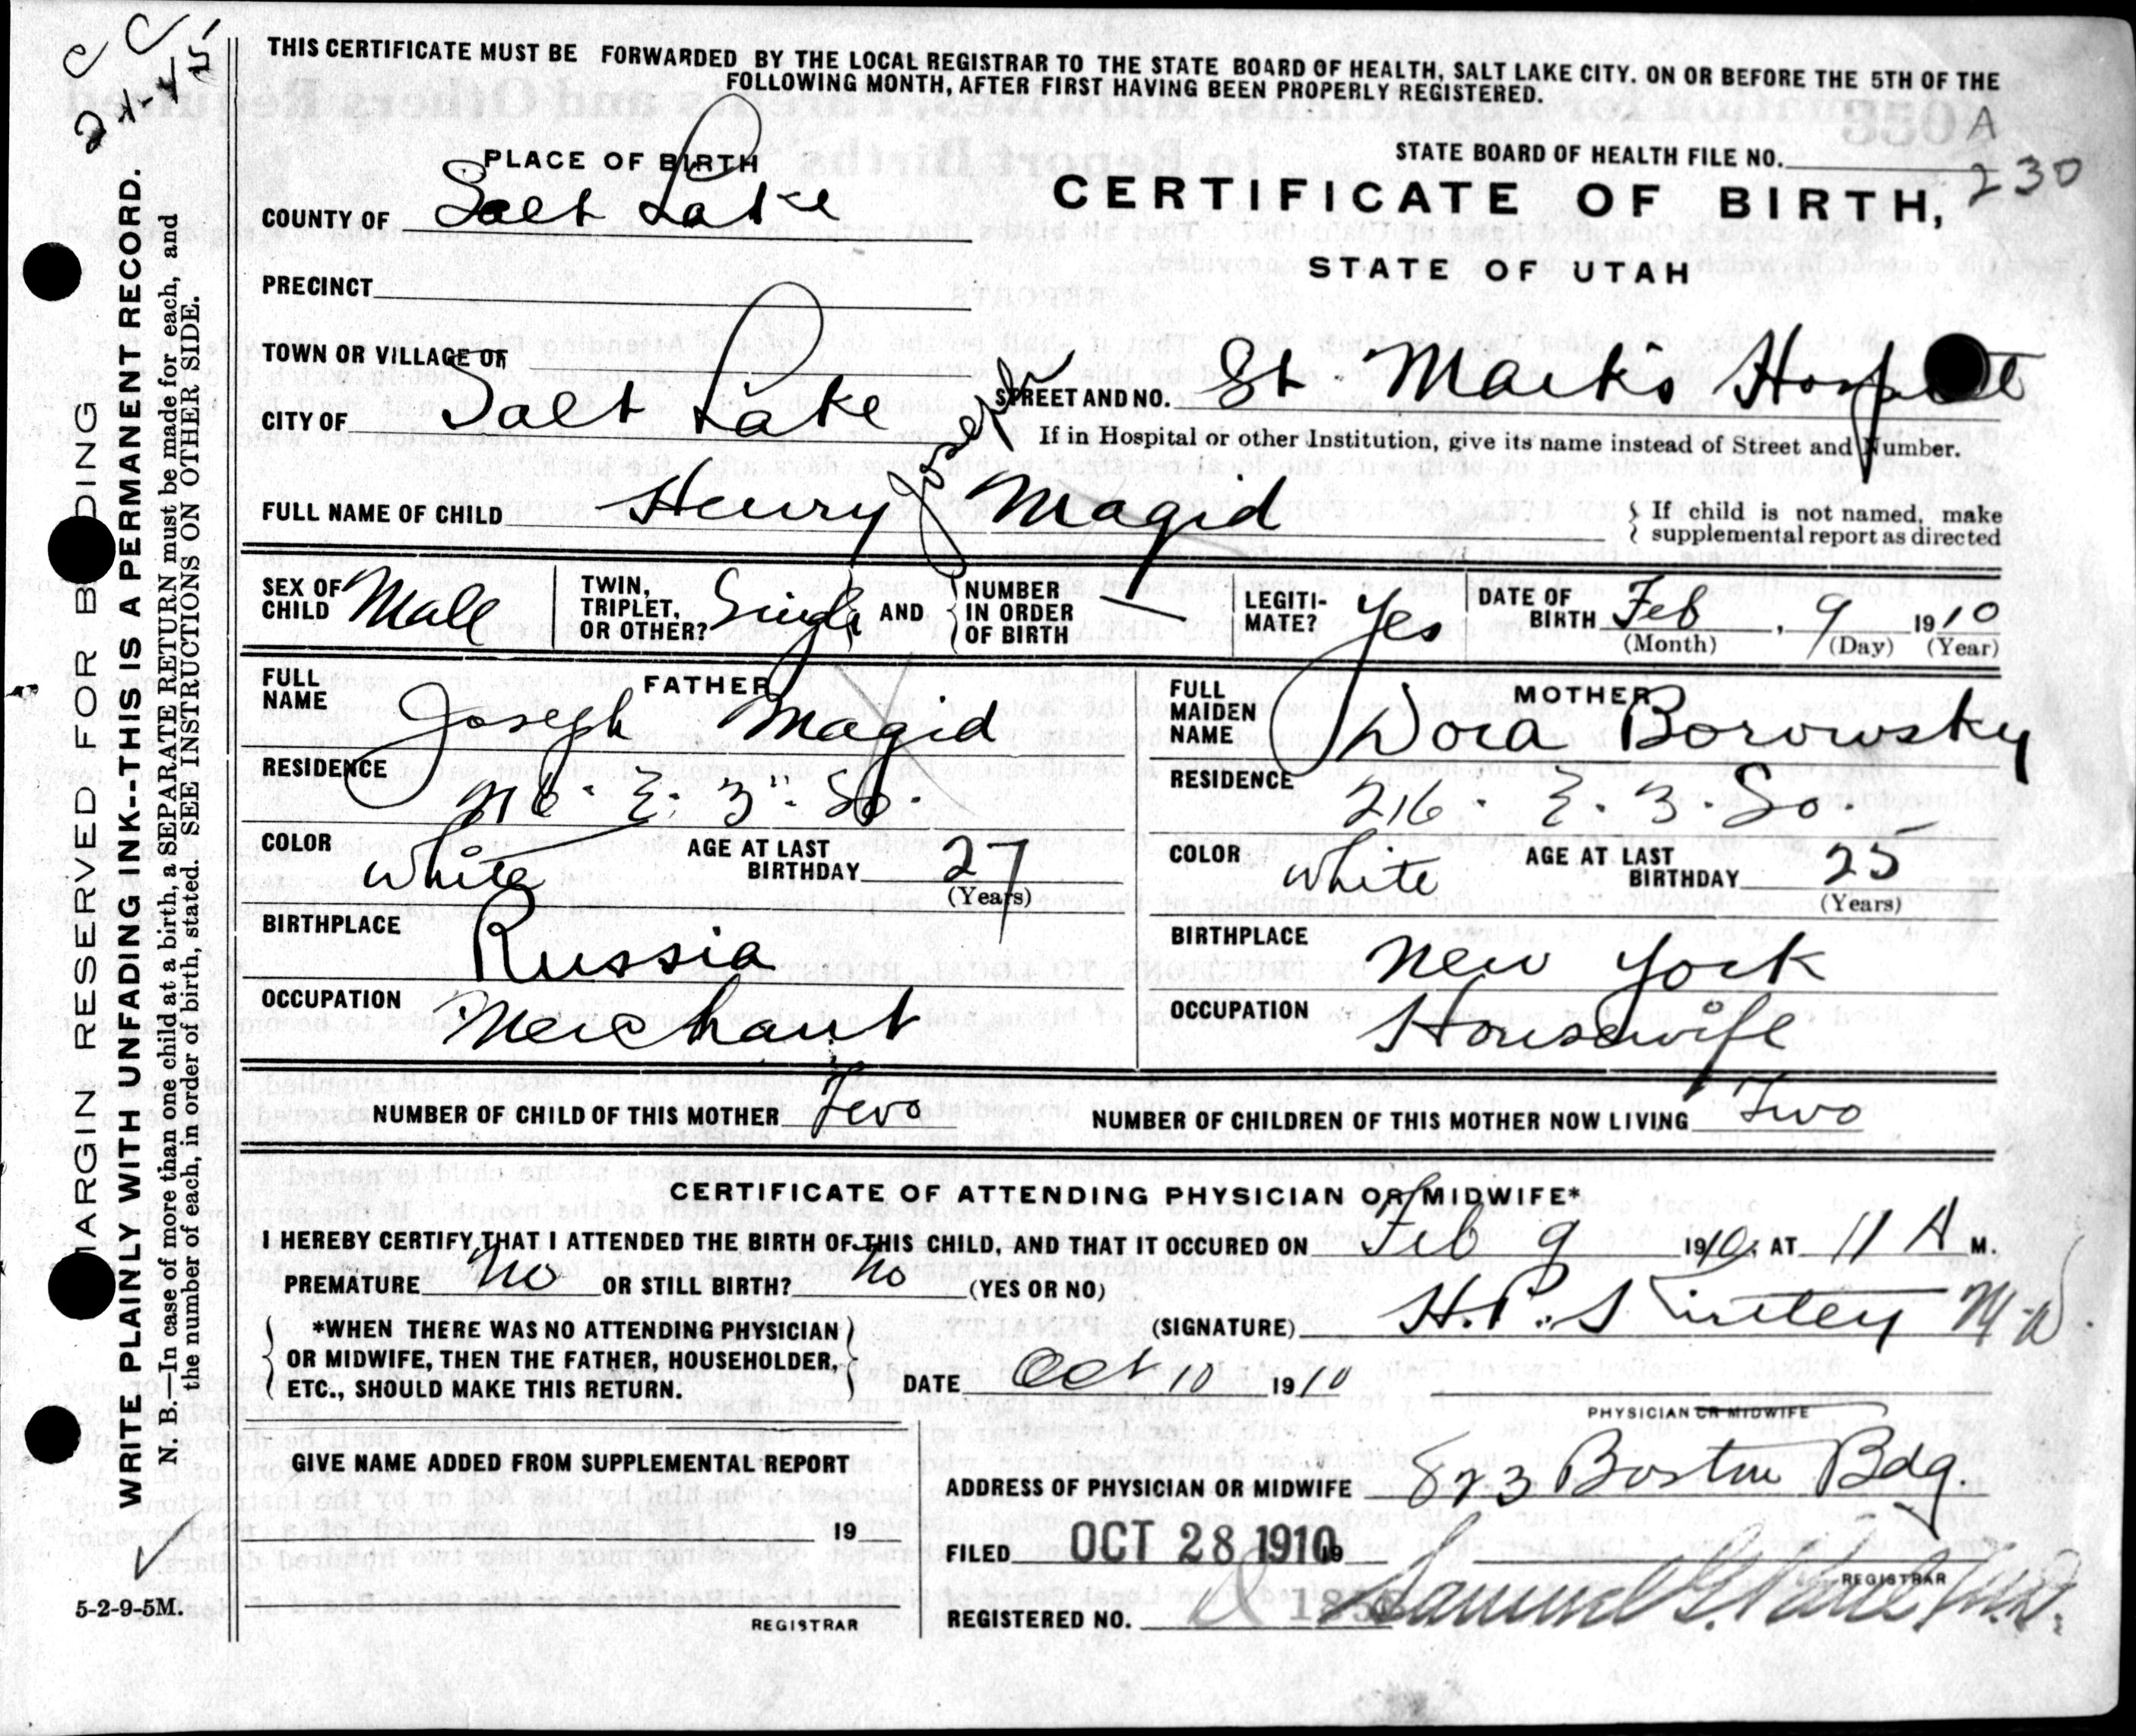 THIS CERTIFICATE MUST BE FORWARDED BY THE LOCAL REGISTRAR TO THE STATE BOARD OF HEALTH, SALT LAKE CITY. ON OR BEFORE THE 5TH OF THE
FOLLOWING MONTH, AFTER FIRST HAVING BEEN PROPERLY REGISTERED.
MARGIN RESERVED FOR BINDING
WRITE PLAINLY WITH UNFADING INK--THIS IS A PERMANENT RECORD.
N. B.—In case of more than one child at a birth, a SEPARATE RETURN must be made for each, and
the number of each, in order of birth, stated. SEE INSTRUCTIONS ON OTHER SIDE.
PLACE OF BIRTH
STATE BOARD OF HEALTH FILE NO. A
230
COUNTY OF Salt Lake
CERTIFICATE OF BIRTH,
STATE OF UTAH
PRECINCT
TOWN OR VILLAGE OF
CITY OF Salt Lake
STREET AND NO. St Mark's Hospital
If in Hospital or other Institution, give its name instead of Street and Number.
FULL NAME OF CHILD Henry Magid
If child is not named, make
supplemental report as directed
SEX OF CHILD Male
TWIN, TRIPLET, OR OTHER? Single AND NUMBER IN ORDER OF BIRTH
LEGITI-MATE? Yes
DATE OF BIRTH Feb, 9 1910
(Month) (Day) (Year)
FATHER
FULL NAME Joseph Magid
RESIDENCE 216. E. 3". So.
COLOR White AGE AT LAST BIRTHDAY 27
(Years)
BIRTHPLACE Russia
OCCUPATION Merchant
MOTHER
FULL MAIDEN NAME Dora Borowsky
RESIDENCE 216. E. 3. So.
COLOR White AGE AT LAST BIRTHDAY 25
(Years)
BIRTHPLACE New York
OCCUPATION Housewife
NUMBER OF CHILD OF THIS MOTHER Two NUMBER OF CHILDREN OF THIS MOTHER NOW LIVING Two
CERTIFICATE OF ATTENDING PHYSICIAN OR MIDWIFE*
I HEREBY CERTIFY THAT I ATTENDED THE BIRTH OF THIS CHILD, AND THAT IT OCCURED ON Feb 9 1910, AT 11 A M.
PREMATURE No OR STILL BIRTH? No (YES OR NO)
*WHEN THERE WAS NO ATTENDING PHYSICIAN
OR MIDWIFE, THEN THE FATHER, HOUSEHOLDER,
ETC., SHOULD MAKE THIS RETURN.
(SIGNATURE) H.P. Kirtley M.D.
DATE Oct 10 1910
PHYSICIAN OR MIDWIFE
GIVE NAME ADDED FROM SUPPLEMENTAL REPORT
19
REGISTRAR
ADDRESS OF PHYSICIAN OR MIDWIFE 823 Boston Bdg.
FILED OCT 28 1910 19
REGISTRAR
REGISTERED NO. Samuel G. Paul M.D.
5-2-9-5M.